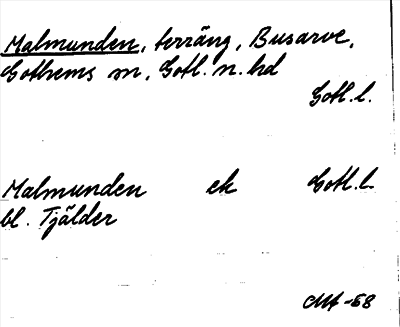 Malmunden, terräng, Busarve,
Gothems sn, Gotl. n. hd
Gotl. l.
Malmunden ek Gotl. l.
bl. Tjälder
-58